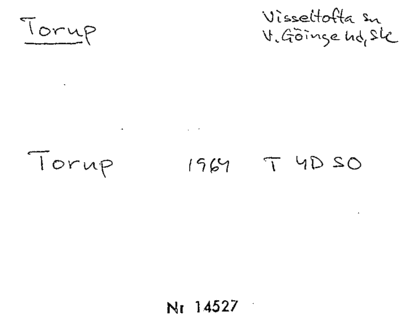 Torup
Visseltofta sn
V. Göinge hd, Sk
Torup 1964 T 4D SO
Nr 14527